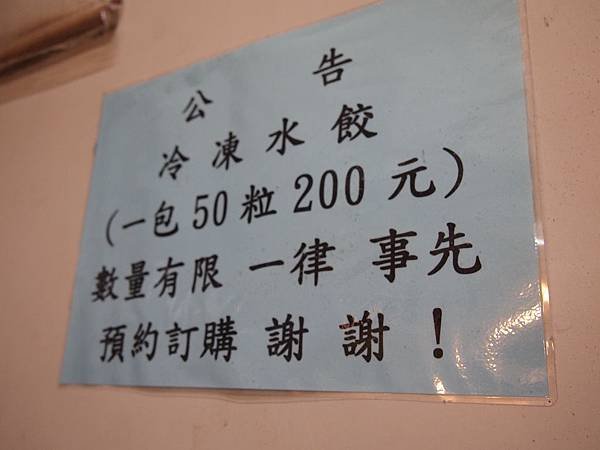 公告
冷凍水餃
(一包50粒200元)
數量有限 一律 事先
預約訂購 謝 謝 !